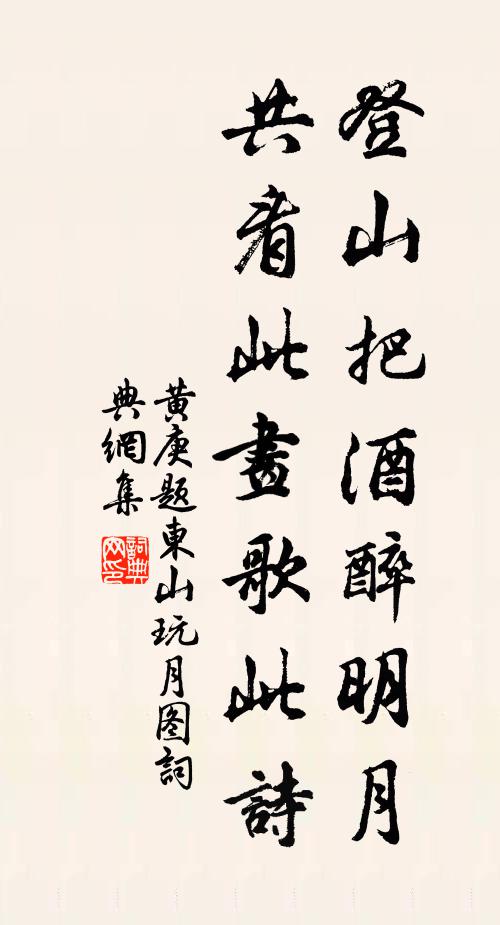 登山把酒醉明月
共看此畫歌此詩
黃庚題東山玩月图詞
典網集
詞典网印